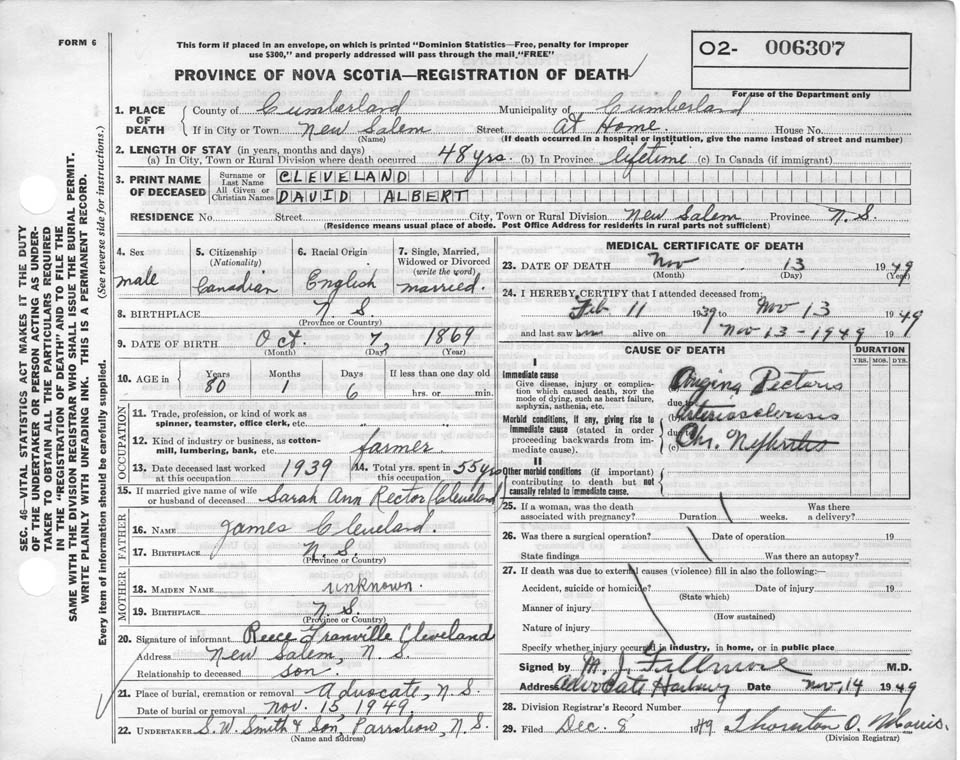 FORM 6
This form if placed in an envelope, on which is printed "Dominion Statistics—Free, penalty for improper
use $300," and properly addressed will pass through the mail "FREE"
PROVINCE OF NOVA SCOTIA—REGISTRATION OF DEATH
02- 006307
For use of the Department only
SEC. 46—VITAL STATISTICS ACT MAKES IT THE DUTY
OF THE UNDERTAKER OR PERSON ACTING AS UNDER-
TAKER TO OBTAIN ALL THE PARTICULARS REQUIRED
IN THE "REGISTRATION OF DEATH" AND TO FILE THE
SAME WITH THE DIVISION REGISTRAR WHO SHALL ISSUE THE BURIAL PERMIT.
WRITE PLAINLY WITH UNFADING INK. THIS IS A PERMANENT RECORD.
Every item of information should be carefully supplied. (See reverse side for instructions.)
1. PLACE OF DEATH County of Cumberland Municipality of Cumberland
If in City or Town New Salem Street At Home. House No.
(Name) (If death occurred in a hospital or institution, give the name instead of street and number)
2. LENGTH OF STAY (in years, months and days)
(a) In City, Town or Rural Division where death occurred 48 yrs. (b) In Province lifetime (c) In Canada (if immigrant)
3. PRINT NAME OF DECEASED Surname or Last Name CLEVELAND
All Given or Christian Names DAVID ALBERT
RESIDENCE No. Street City, Town or Rural Division New Salem Province N.S.
(Residence means usual place of abode. Post Office Address for residents in rural parts not sufficient)
4. Sex male
5. Citizenship (Nationality) Canadian
6. Racial Origin English
7. Single, Married, Widowed or Divorced (write the word) married.
8. BIRTHPLACE N.S.
(Province or Country)
9. DATE OF BIRTH Oct. 7, 1869
(Month) (Day) (Year)
10. AGE in Years 80 Months 1 Days 6 If less than one day old hrs. or min.
OCCUPATION
11. Trade, profession, or kind of work as
spinner, teamster, office clerk, etc. " "
12. Kind of industry or business, as cotton-
mill, lumbering, bank, etc. farmer
13. Date deceased last worked at this occupation 1939 14. Total yrs. spent in this occupation 55 yrs
15. If married give name of wife or husband of deceased Sarah Ann Rector (Cleveland)
FATHER
16. NAME James Cleveland.
17. BIRTHPLACE N.S.
(Province or Country)
MOTHER
18. MAIDEN NAME unknown
19. BIRTHPLACE N.S.
(Province or Country)
20. Signature of informant Reece Granville Cleveland
Address New Salem, N.S.
Relationship to deceased son.
21. Place of burial, cremation or removal Advocate, N.S.
Date of burial or removal Nov. 15 1949.
22. UNDERTAKER S.W. Smith & Son, Parrsboro, N.S.
(Name and address)
MEDICAL CERTIFICATE OF DEATH
23. DATE OF DEATH Nov 13 1949
(Month) (Day)
24. I HEREBY CERTIFY that I attended deceased from:
Feb 11 1939 to Nov 13 1949
and last saw alive on Nov 13 - 1949 19
CAUSE OF DEATH DURATION
YRS. MOS. DYS.
I
Immediate cause
Give disease, injury or complica-
tion which caused death, not the
mode of dying, such as heart failure,
asphyxia, asthenia, etc.
Angina Pectoris
due to
Morbid conditions, if any, giving rise to
immediate cause (stated in order
proceeding backwards from im-
mediate cause).
(b) Arteriosclerosis
due to
(c) Chr. Nephritis
II
Other morbid conditions (if important)
contributing to death but not
causally related to immediate cause.
25. If a woman, was the death Was there
associated with pregnancy? Duration weeks. a delivery?
26. Was there a surgical operation? Date of operation 19
State findings Was there an autopsy?
27. If death was due to external causes (violence) fill in also the following:—
Accident, suicide or homicide? Date of injury 19
(State which)
Manner of injury
(How sustained)
Nature of injury
Specify whether injury occurred in industry, in home, or in public place
Signed by M. J. Fillmore M.D.
Address Advocate Harbour Date Nov, 14 1949
28. Division Registrar's Record Number 9
29. Filed Dec. 8 1949 Thornton O. Morris.
(Division Registrar)